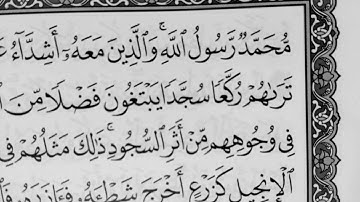 مُّحَمَّدٌ رَّسُولُ ٱللَّهِۚ وَٱلَّذِينَ مَعَهُۥٓ أَشِدَّآءُ
تَرَىٰهُمْ رُكَّعًا سُجَّدًا يَبْتَغُونَ فَضْلًا مِّنَ
فِى وُجُوهِهِم مِّنْ أَثَرِ ٱلسُّجُودِۚ ذَٰلِكَ مَثَلُهُمْ فِى
ٱلْإِنجِيلِ كَزَرْعٍ أَخْرَجَ شَطْـَٔهُۥ فَـَٔازَرَهُۥ